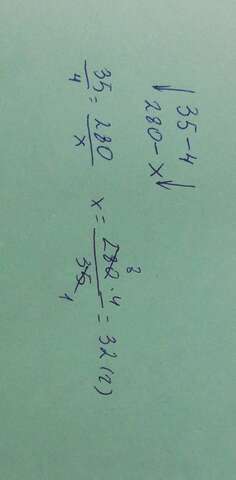 ↓ 35 – 4
280 – x ↓
35/4 = 280/x   x = 280 · 4 / 35 = 32 (г)
8
1